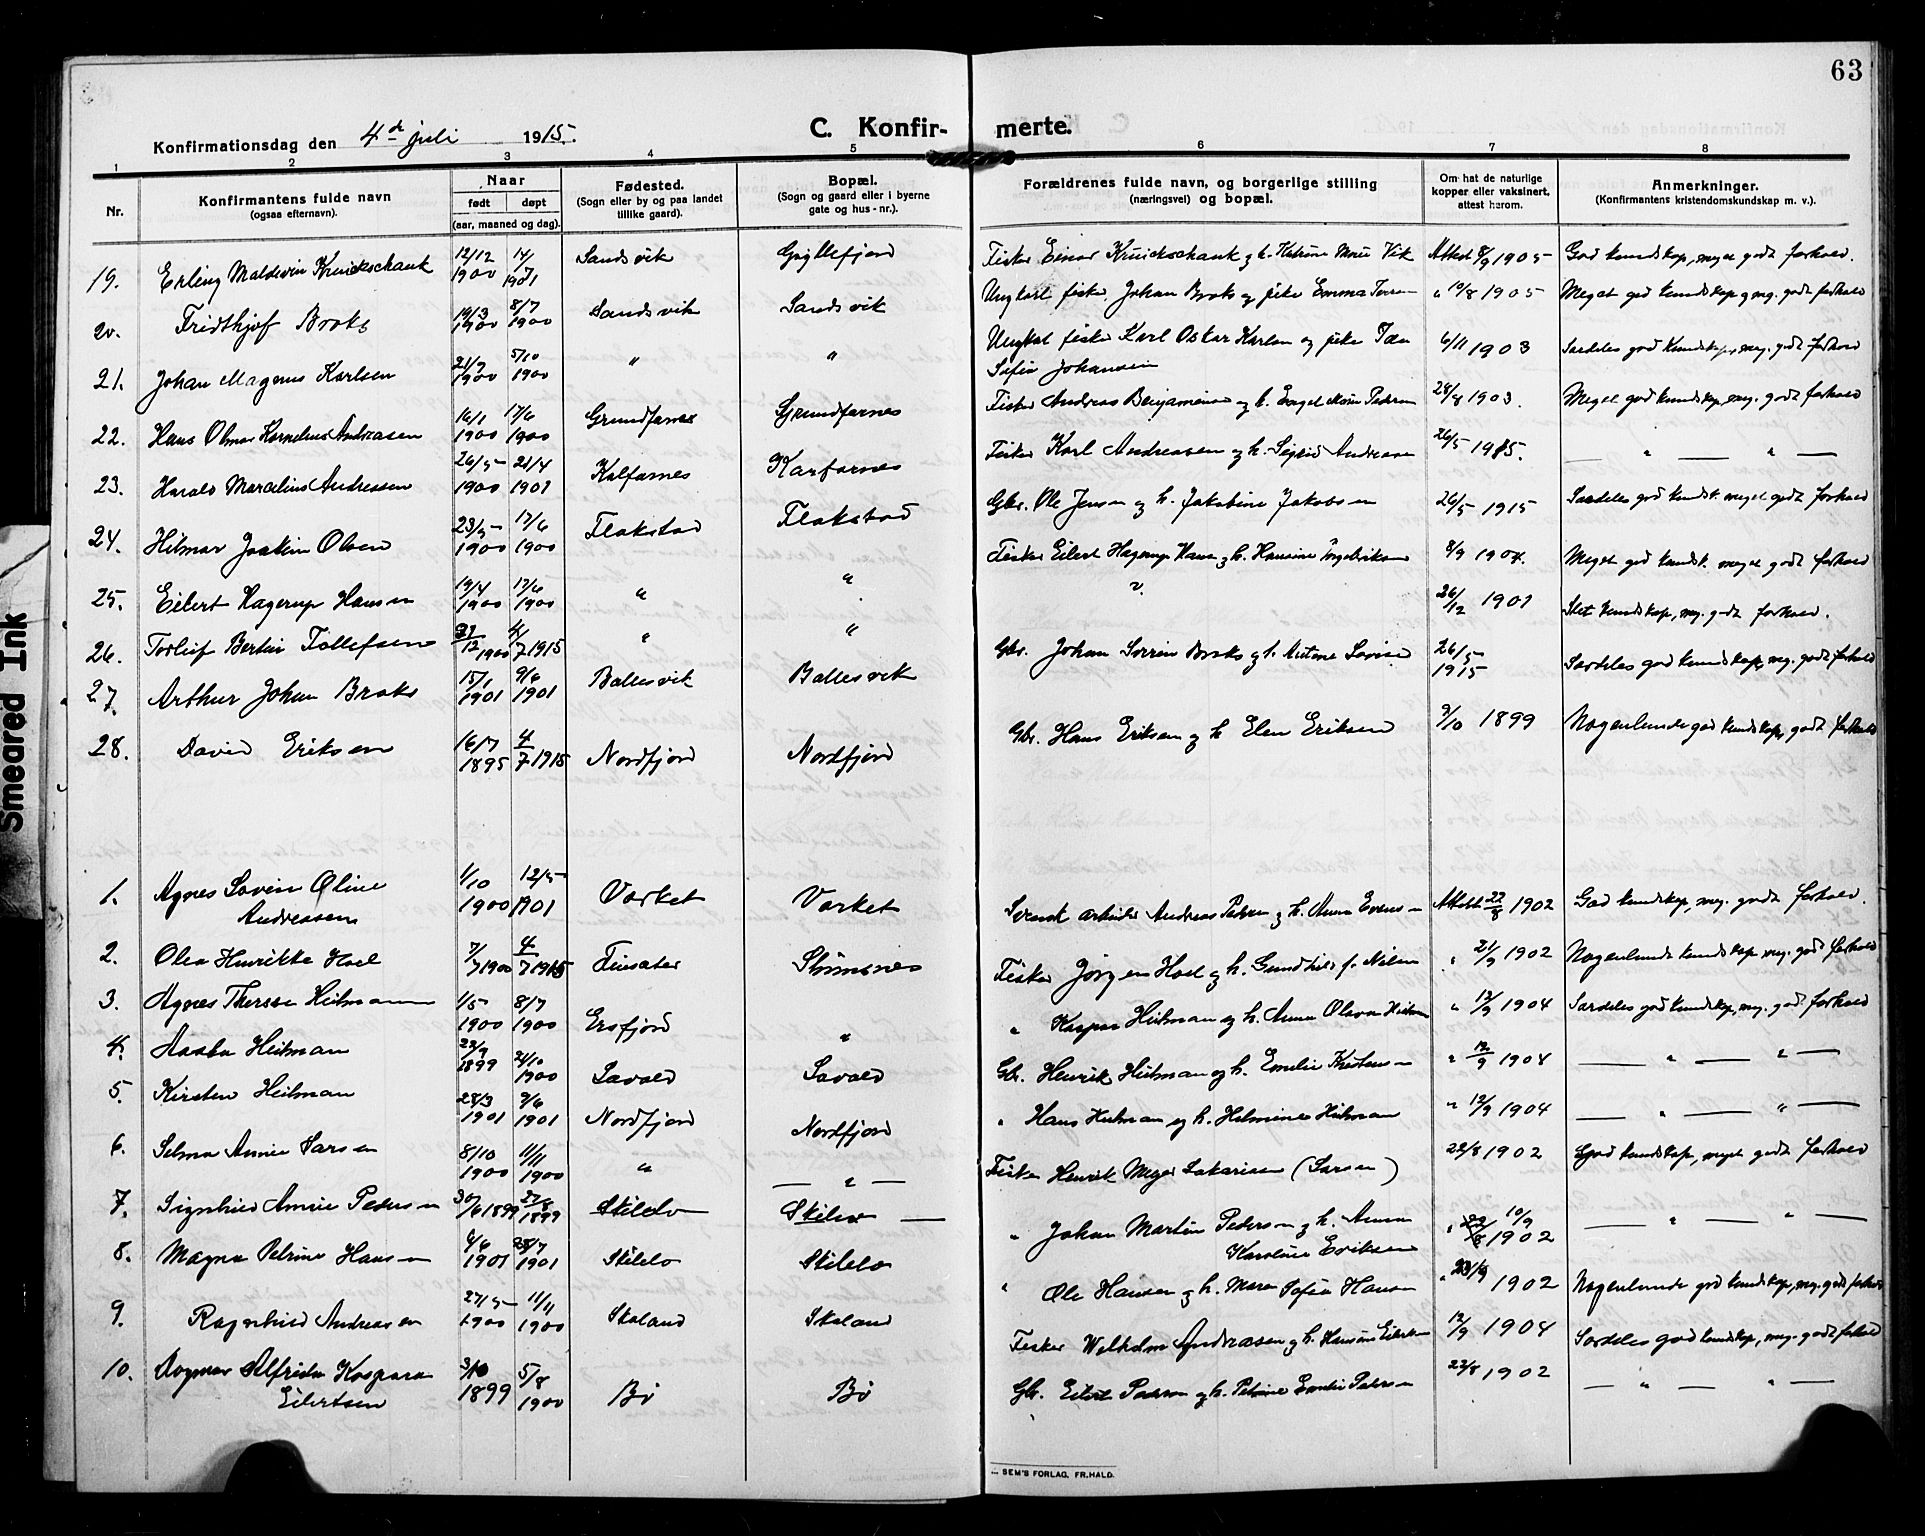 63
C. Konfirmerte.
Konfirmationsdag den 4de juli 1915.
1 2 3 4 5 6 7 8
Nr.
Konfirmantens fulde navn
(ogsaa efternavn).
Naar
født døpt
(aar, maaned og dag).
Fødested.
(Sogn eller by og paa landet
tillike gaard).
Bopæl.
(Sogn og gaard eller i byerne
gate og hus-nr.).
Forældrenes fulde navn, og borgerlige stilling
(næringsvei) og bopæl.
Om hat de naturlige
kopper eller vaksinert,
attest herom.
Anmerkninger.
(Konfirmantens kristendomskundskap m. v.).
19. Erling Maldevin Kruickschank 12/12 1900 14/1 1901 Sandsvik Gryllefjord Fisker Einar Kruickschank g h. Vik Attest 8/9 1905 God kundskap, meget godt forhold.
20. Fridthjof Broks 19/3 1900 8/7 1900 Sandsvik Sandsvik Ungkarl fisker Johan Broks og pike Emma " 10/8 1905 Meget god kundskap g mg. godt forhold
21. Johan Magnus Karlsen 21/7 1900 5/10 1900 " " Ungkal fisker Karl Oskar Karlsen og pike Ida
Sofie Johansen 6/11 1903 Særdeles god kundskap, mg. godt forhold
22. Hans Olmar Kornelius Andreasen 16/1 1900 17/6 1900 Grundfarnes Grundfarnes Fisker Andreas Benjaminsen og h. Engel 28/8 1903. Meget god kundskap, mg. godt forhold
23. Harald Marcelius Andreasen 26/5 1900 21/4 1901 Kalfarnes Karfarnes Fisker Karl Andreasen og h. Sigrid Andreasen 26/5 1915. — " — " —
24. Hilmar Joakim Olsen 23/5 1900 17/6 1900 Flakstad Flakstad Gbr. Ole Jensen og h. Jakobine Jakobsen 26/5 1915 Særdeles god kundsk. meget godt forhold
25. Eilert Hagerup Hansen 19/4 1900 17/6 1900 " " Fisker Eilert Hagerup Hans g h. Hansine Ingebriktsen 8/9 1904. Meget god kundsk. meget godt forhold
26. Torleif Bertin Tollefsen 12 1900 4/7 1915 " " 26/12 1901 Slet kundskap, mg. godt forhold.
27. Arthur Johan Broks 15/1 1901 9/6 1901 Ballesvik Ballesvik Gbr. Johan Sørren Broks g h. Lovise 26/5 1915 Særdeles god kundskap, mg. godt forhold
28. David Eriksen 16/7 1895 4/7 1915 Nordfjord Nordfjord Gbr. Hans Eriksen og h Elen Eriksen 9/10 1899 Nogenlunde god kundskap, godt forhold
1. Agnes Lovise Oline
Andreasen 1/10 1900 12/5 1901 Vorket Vorket Svensk arbeider Andreas Pedersen g h. Anna Evensen Attest 22/8 1902 God kundskap, mg. godt forhold.
2. Olea Henrikke Hoel 7/7 1900 4/7 1915 Finsæter Stønsnes Fisker Jørgen Hoel og h. Gundhild f. Nilsen " 21/9 1902 Nogenlunde kundskap, mg. godt forhold
3. Agnes Therese Heitmann 1/5 1900 8/7 1900 Ersfjord " " Kaspar Heitman og h. Anna Olava " 12/9 1904 Særdeles god kundskap, mg. god. forhold
4. Aasta Heitman 22/9 1899 21/10 1900 Lavold Lavold Gb. Henrik Heitman og h. Emelie Kristensen " 12/9 1904 — " — " —
5. Kirsten Heitman 28/3 1901 9/6 1901 Nordfjord Nordfjord " Hans Heitman og h. Helmine Heitman " 12/9 1904 — " — " —
6. Selma Annie Larsen 8/10 1900 11/11 1900 " — " — Fisker Henrik Meyer Sakarisen (Larsen) 22/8 1902 God kundskap, meget godt forhold
7. Signhild Amie Pedersen 30/6 1899 27/8 1899 Skilelv Skilelv — " Johan Martin Pedersen g h. Anna
Karoline Eriksen " 10/9 1902 — " — " —
8. Magna Petrine Hansen 6/6 1901 28/7 1901 Skilelv Skilelv " Ole Hansen g h. Maren Sofie Hansen " 23/9 1902 Nogenlunde god kundskap, mg. godt forhold
9. Ragnhild Andreasen 27/5 1900 11/11 1900 Skaland Skaland Fisker Wilhelm Andreasen g h. Hansine 12/9 1904 Særdeles god kundskap, mg. godt forhold
10. Dagmar Alfrida Kaspara
Eilertsen 3/10 1899 5/8 1900 Bø Bø Gb. Eilert Pedersen g h. Petrine Emelie Pedersen 22/8 1902 — " — " —
SEM'S FORLAG, FR.HALD.
Smeared Ink